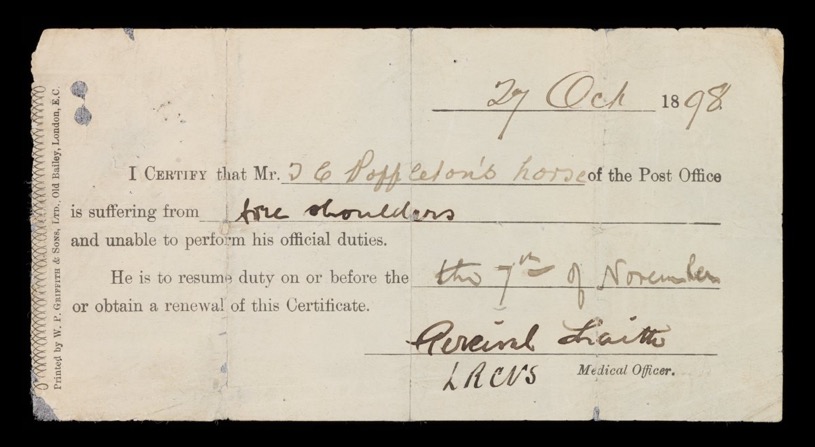 27 Oct 1898
I CERTIFY that Mr. T C Poppleton's horse of the Post Office
is suffering from sore shoulders
and unable to perform his official duties.
He is to resume duty on or before the the 7th of November
or obtain a renewal of this Certificate.
Percival
LRCVS Medical Officer.
Printed by W. P. GRIFFITH & SONS, LTD., Old Bailey, London, E.C.